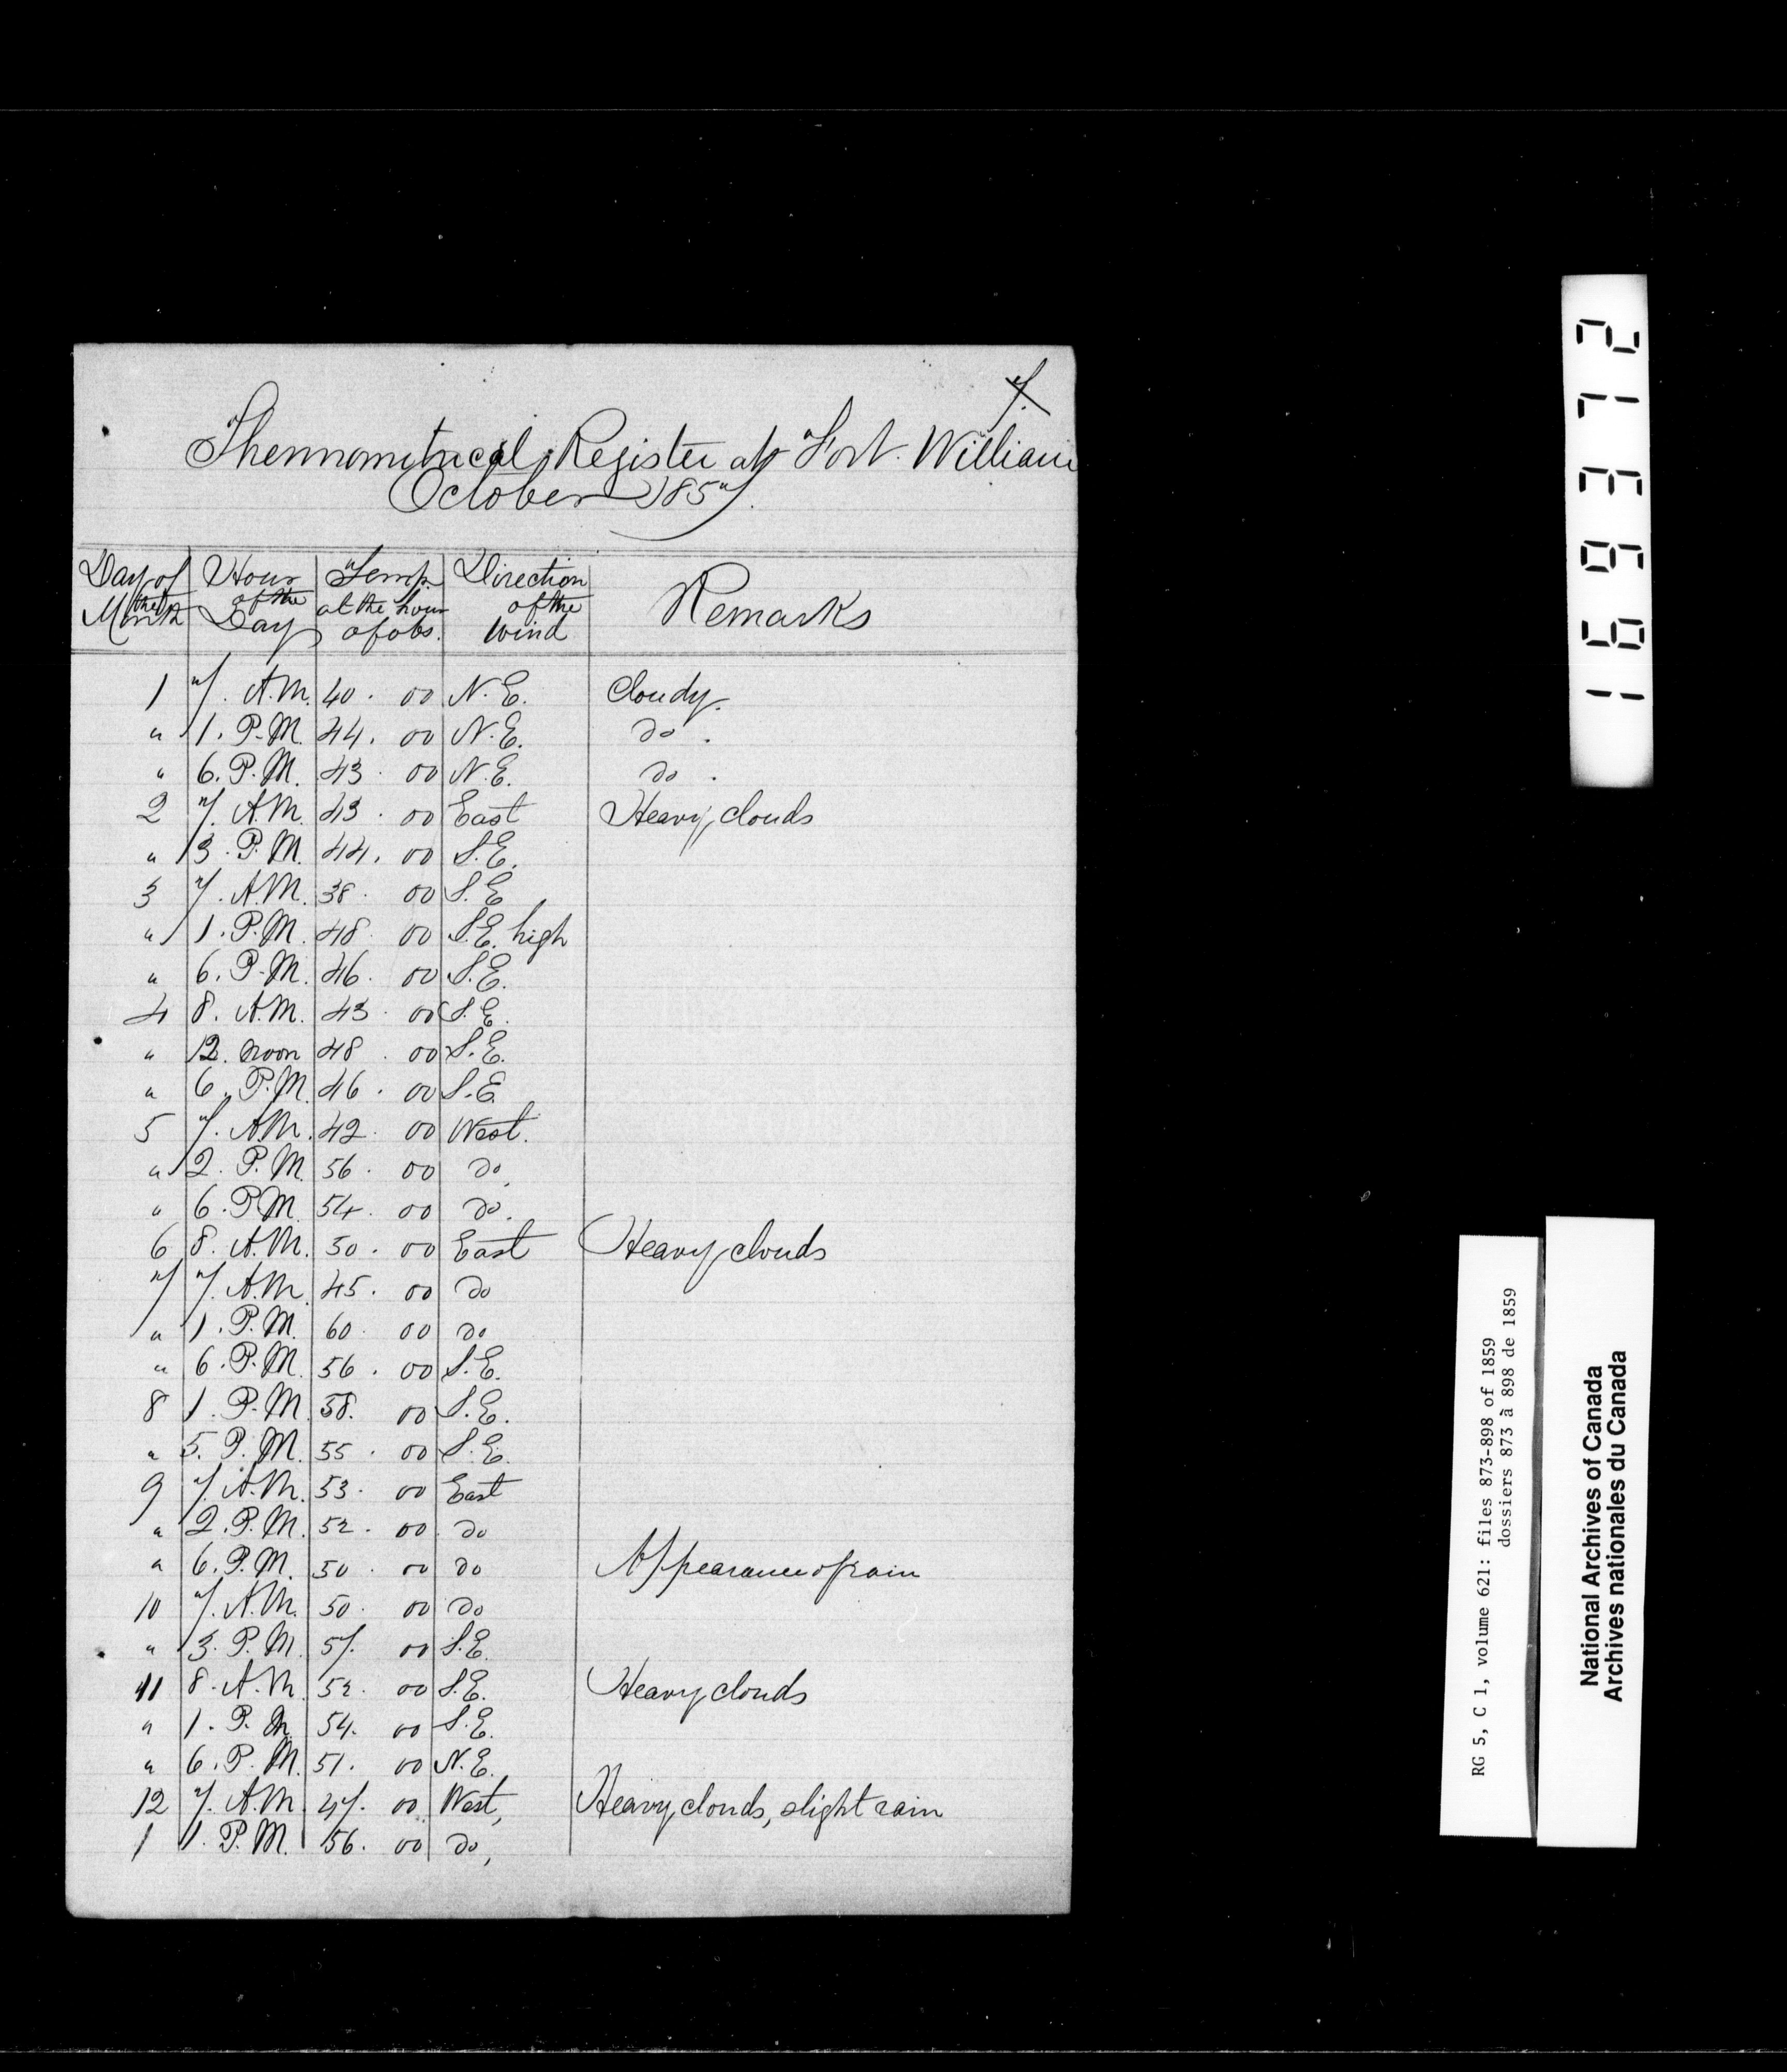 7.
Thermometrical Register at Fort William
October 1857.
Day of the Month | Hour of the Day | Temp at the hour of obs. | Direction of the wind | Remarks
1 7. A.M. 40. 00 N.E. Cloudy.
" 1. P.M. 44. 00 N.E. do.
" 6. P.M. 43. 00 N.E. do.
2 7. A.M. 43. 00 East Heavy clouds
" 3. P.M. 44. 00 S.E.
3 7. A.M. 38. 00 S.E.
" 1. P.M. 48. 00 S.E. high
" 6. P.M. 46. 00 S.E.
4 8. A.M. 43. 00 S.E.
" 12. noon 48. 00 S.E.
" 6. P.M. 46. 00 S.E.
5 7. A.M. 42. 00 West.
" 2. P.M. 56. 00 do.
" 6. P.M. 54. 00 do.
6 8. A.M. 50. 00 East Heavy clouds
7 7. A.M. 45. 00 do
" 1. P.M. 60. 00 do
" 6. P.M. 56. 00 S.E.
8 1. P.M. 58. 00 S.E.
" 5. P.M. 55. 00 S.E.
9 7. A.M. 53. 00 East
" 2. P.M. 52. 00 do
" 6. P.M. 50. 00 do Appearance of rain
10 7. A.M. 50. 00 do
" 3. P.M. 57. 00 S.E.
11 8. A.M. 52. 00 S.E. Heavy clouds
" 1. P.M. 54. 00 S.E.
" 6. P.M. 51. 00 N.E.
12 7. A.M. 47. 00 West, Heavy clouds, slight rain
1 1. P.M. 56. 00 do,
169372
RG 5, C 1, volume 621: files 873-898 of 1859
dossiers 873 à 898 de 1859
National Archives of Canada
Archives nationales du Canada